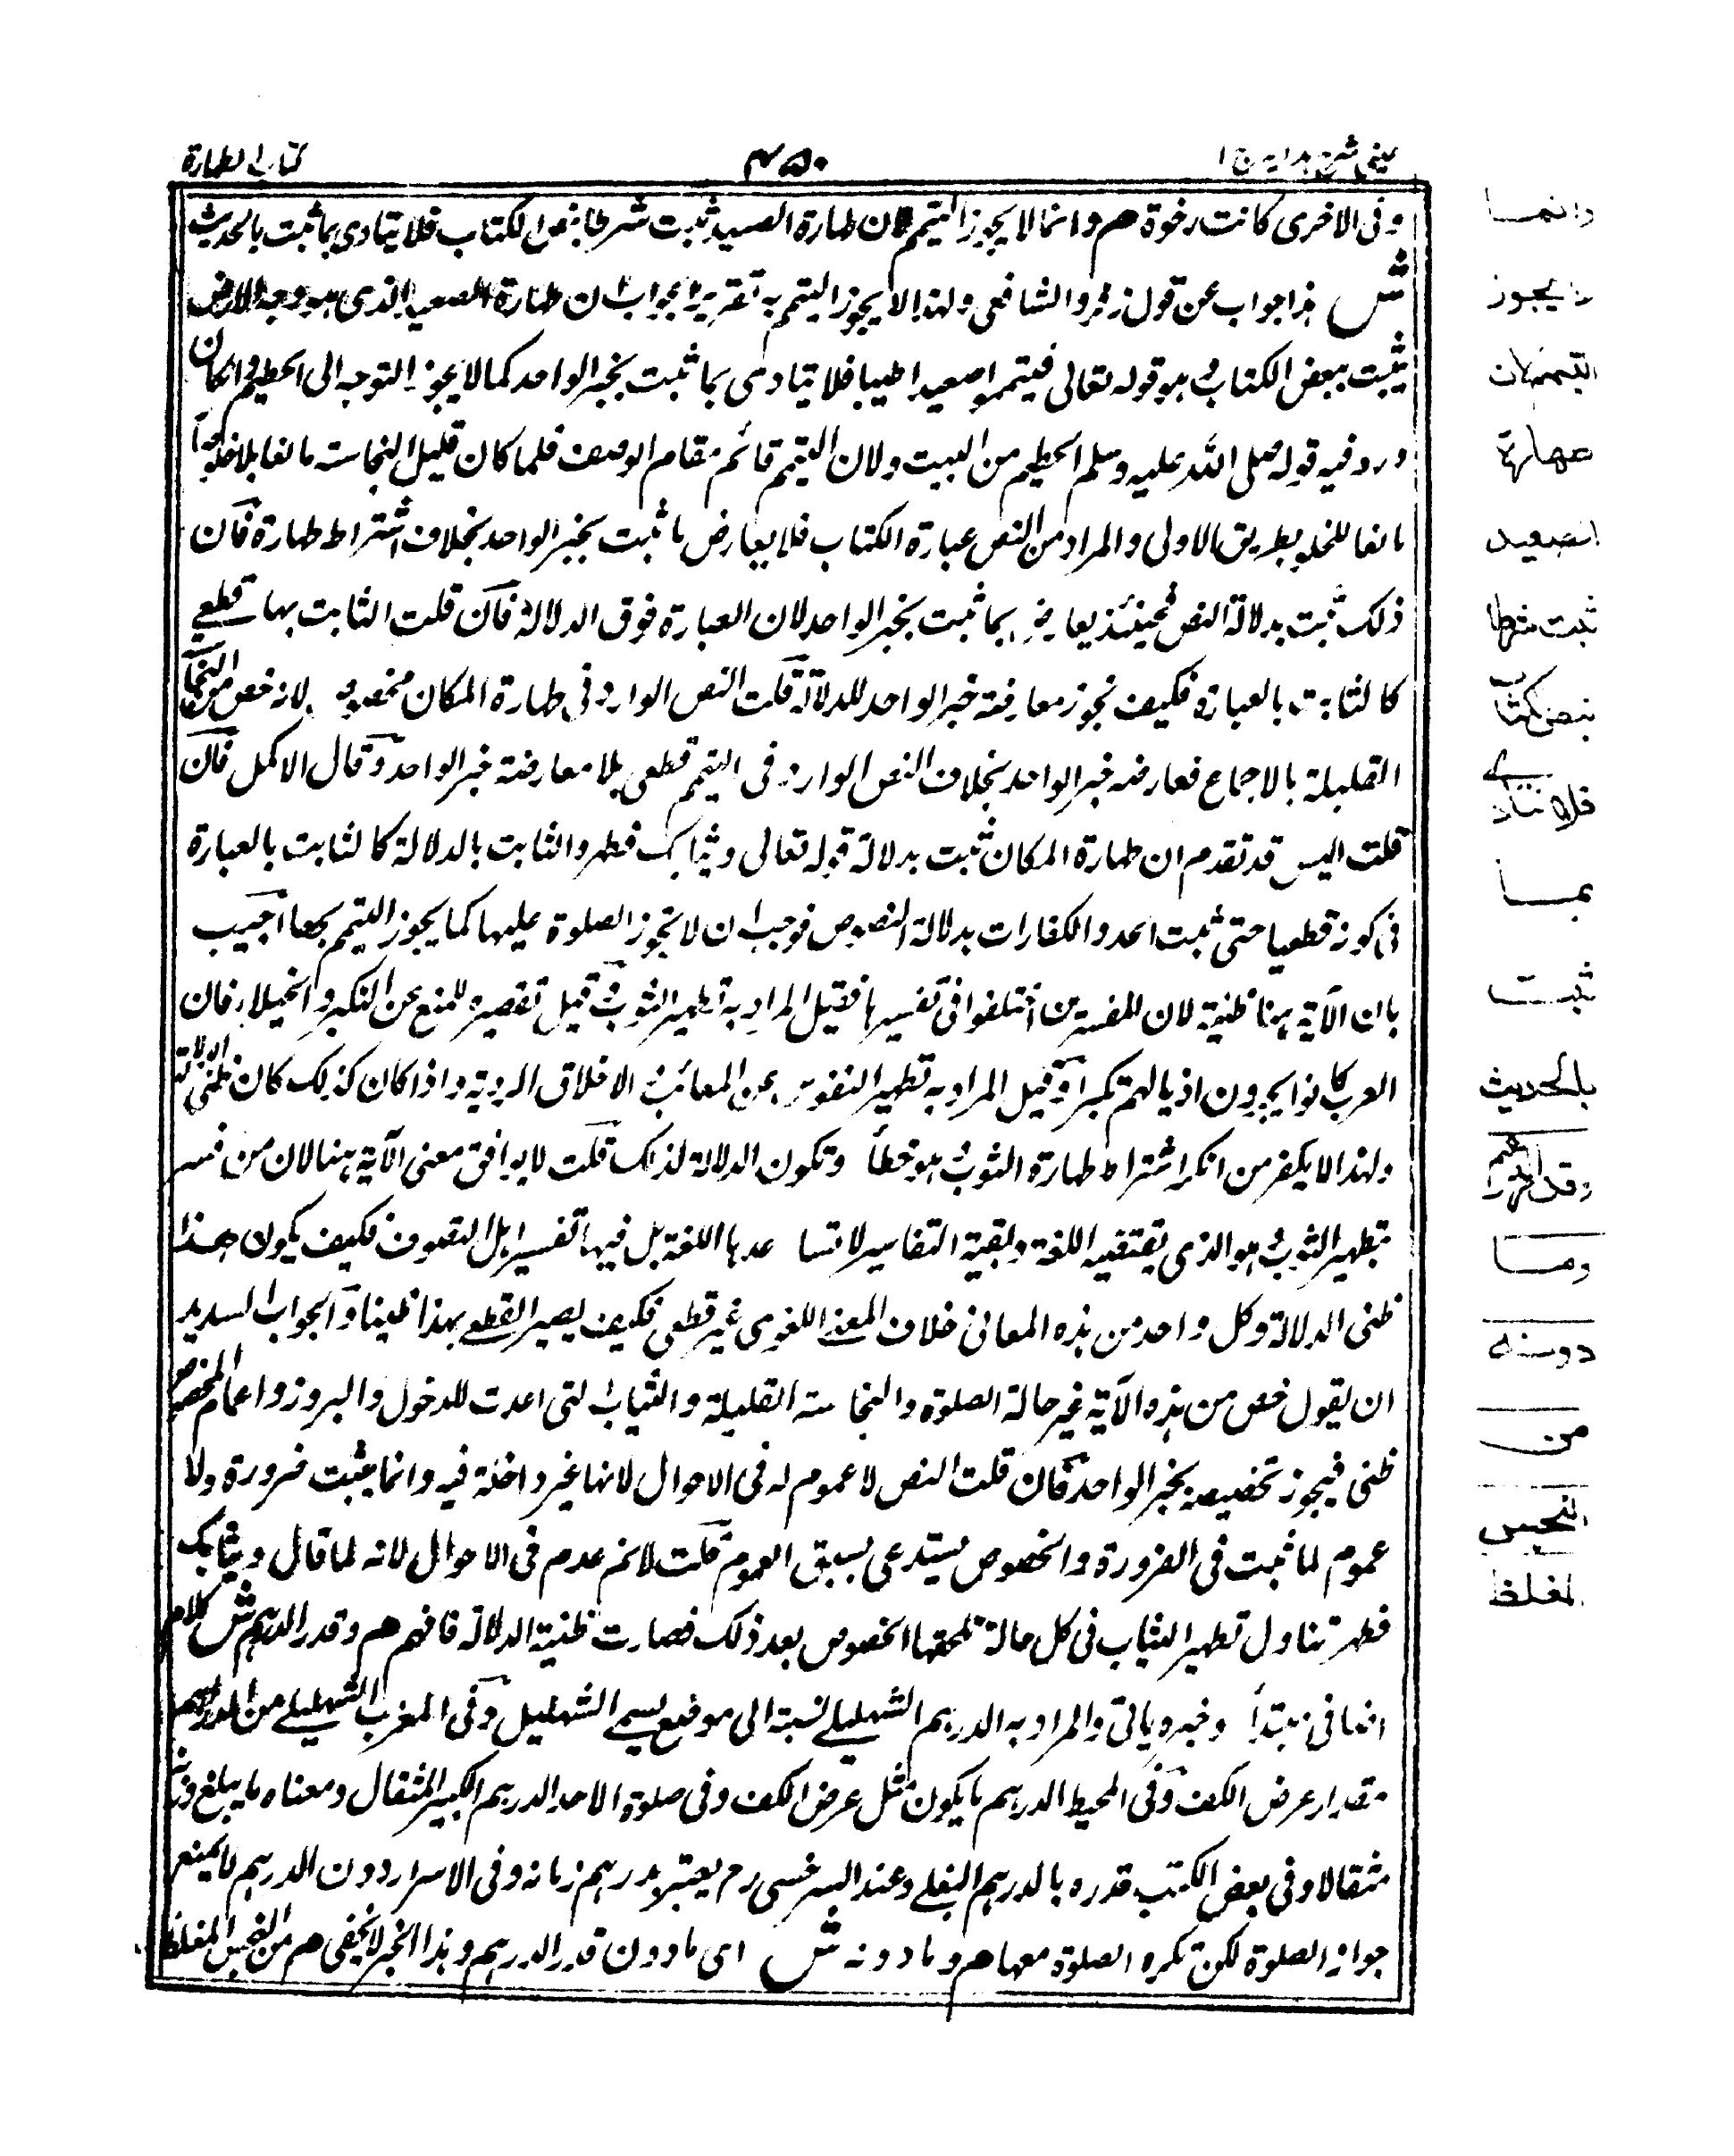 عینی شرح هدایه ج ۱
۴۵۰
کتاب الطهارة
وفی الاخری کانت رخوة هم وانما لا یجوز التیمم لان طهارة الصعید ثبت شرطا بنص الکتاب فلا یتادی بما ثبت بالحدیث
ش هذا جواب عن قول زفر والشافعی ولهذا لا یجوز التیمم به تقریر الجواب ان طهارة الصعید الذی هو وجه الارض
یثبت ببعض الکتاب وهو قوله تعالی فتیمموا صعیدا طیبا فلا یتادی بما ثبت بخبر الواحد کما لا یجوز التوجه الی الحطیم وان کان
ورد فیه قوله صلی الله علیه وسلم الحطیم من البیت ولان التیمم قائم مقام الوصف فلما کان قلیل النجاسة مانعا بلا خلاف
مانعا للخلف بطریق الاولی والمراد من النص عبارة الکتاب فلا یعارض ما ثبت بخبر الواحد بخلاف اشتراط طهارة فان
ذلک ثبت بدلالة النص فحینئذ یعارض بما ثبت بخبر الواحد لان العبارة فوق الدلالة فان قلت الثابت بها قطعی
کالثابت بالعبارة فکیف نجوز معارضة خبر الواحد للدلالة قلت النص الوارد فی طهارة المکان مخصوص لانه خص من النجاسة
القلیلة بالاجماع فعارضه خبر الواحد بخلاف النص الوارد فی التیمم قطعی بلا معارضة خبر الواحد وقال الاکمل فان
قلت الیس قد تقدم ان طهارة المکان ثبت بدلالة قوله تعالی وثیابک فطهر والثابت بالدلالة کالثابت بالعبارة
فی کونه قطعیا حتی ثبت الحدود والکفارات بدلالة النصوص فوجب ان لا تجوز الصلوة علیها کما یجوز التیمم بها اجیب
بان الآیة هنا ظنیة لان المفسرین اختلفوا فی تفسیرها فقیل المراد به تطهیر الثوب وقیل تقصیره للمنع عن التکبر والخیلاء فان
العرب کانوا یجرون اذیالهم تکبرا وقیل المراد به تطهیر النفوس عن المعائب الاخلاق الردیة واذا کان کذلک کان ظنی الدلالة
ولهذا لا یکفر من انکر اشتراط طهارة الثوب وهو خطأ وتکون الدلالة لذلک قلت لا یوافق معنی الآیة هنا لان من فسر
بتطهیر الثوب هو الذی یقتضیه اللغة وبقیة التفاسیر لا تساعدها اللغة بل فیها تفسیر اهل التصوف فکیف یکون هذا
ظنی الدلالة وکل واحد من هذه المعانی خلاف المعنی اللغوی غیر قطعی فکیف یصیر القطعی بهذا ظنیا والجواب السدید
ان یقول خص من هذه الآیة غیر حالة الصلوة والنجاسة القلیلة والثیاب التی اعدت للدخول والبروز والعام المخصوص
ظنی فیجوز تخصیصه بخبر الواحد فان قلت النص لا عموم له فی الاحوال لانها غیر داخلة فیه وانما یثبت ضرورة ولا
عموم لما ثبت فی الضرورة والخصوص یستدعی بسبق العموم قلت لا نم عدم فی الاحوال لانه لما قال وثیابک
فطهر تناول تطهیر الثیاب فی کل حالة تلحقها الخصوص بعد ذلک فصارت ظنیة الدلالة فافهم هم وقدر الدرهم ش کلام
اضافی مبتدأ وخبره یاتی والمراد به الدرهم الشهلیلی نسبة الی موضع یسمی الشهلیل وفی المغرب الشهلیلی من الدراهم
مقدار عرض الکف وفی المحیط الدرهم ما یکون مثل عرض الکف وفی صلوة الاصل الدرهم الکبیر المثقال ومعناه ما یبلغ وزنه
مثقالا وفی بعض الکتب قدره بالدرهم البغلی وعند السرخسی رح یعتبر بدرهم زمانه وفی الاسرار دون الدرهم لا یمنع
جواز الصلوة لکن تکره الصلوة معها هم وما دونه ش ای ما دون قدر الدرهم وهذا الخبر لا یخفی هم من النجس المغلظ
وانما
لا یجوز
التیمم لان
طهارة
الصعید
ثبت شرطا
بنص الکتاب
فلا یتادی
بما
ثبت
بالحدیث
وقدر الدرهم
وما
دونه
من
النجس
المغلظ